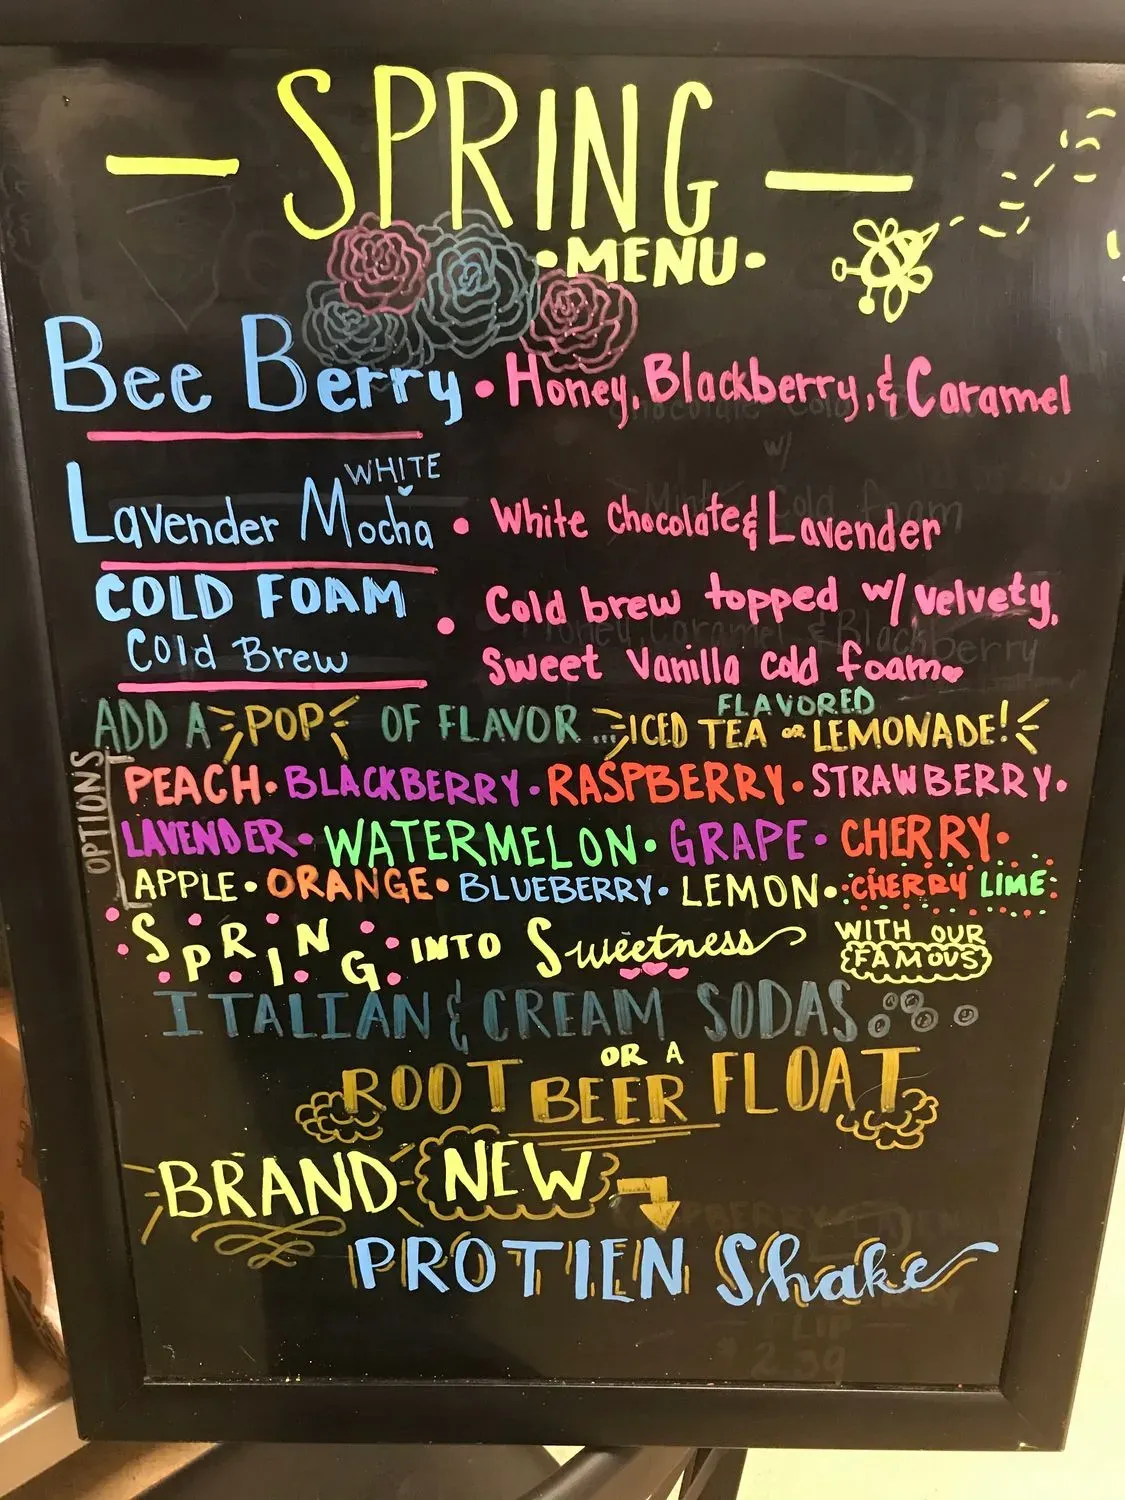 SPRING
•MENU•
Bee Berry • Honey, Blackberry, & Caramel
WHITE
Lavender Mocha • White Chocolate & Lavender
COLD FOAM • Cold brew topped w/ velvety,
Cold Brew sweet vanilla cold foam
FLAVORED
ADD A POP OF FLAVOR ... ICED TEA OR LEMONADE!
OPTIONS
PEACH • BLACKBERRY • RASPBERRY • STRAWBERRY •
LAVENDER • WATERMELON • GRAPE • CHERRY •
APPLE • ORANGE • BLUEBERRY • LEMON • CHERRY LIME
SPRING INTO Sweetness WITH OUR
FAMOUS
ITALIAN & CREAM SODAS
OR A
ROOT BEER FLOAT
BRAND NEW
PROTIEN Shake
FLIP
$2.39